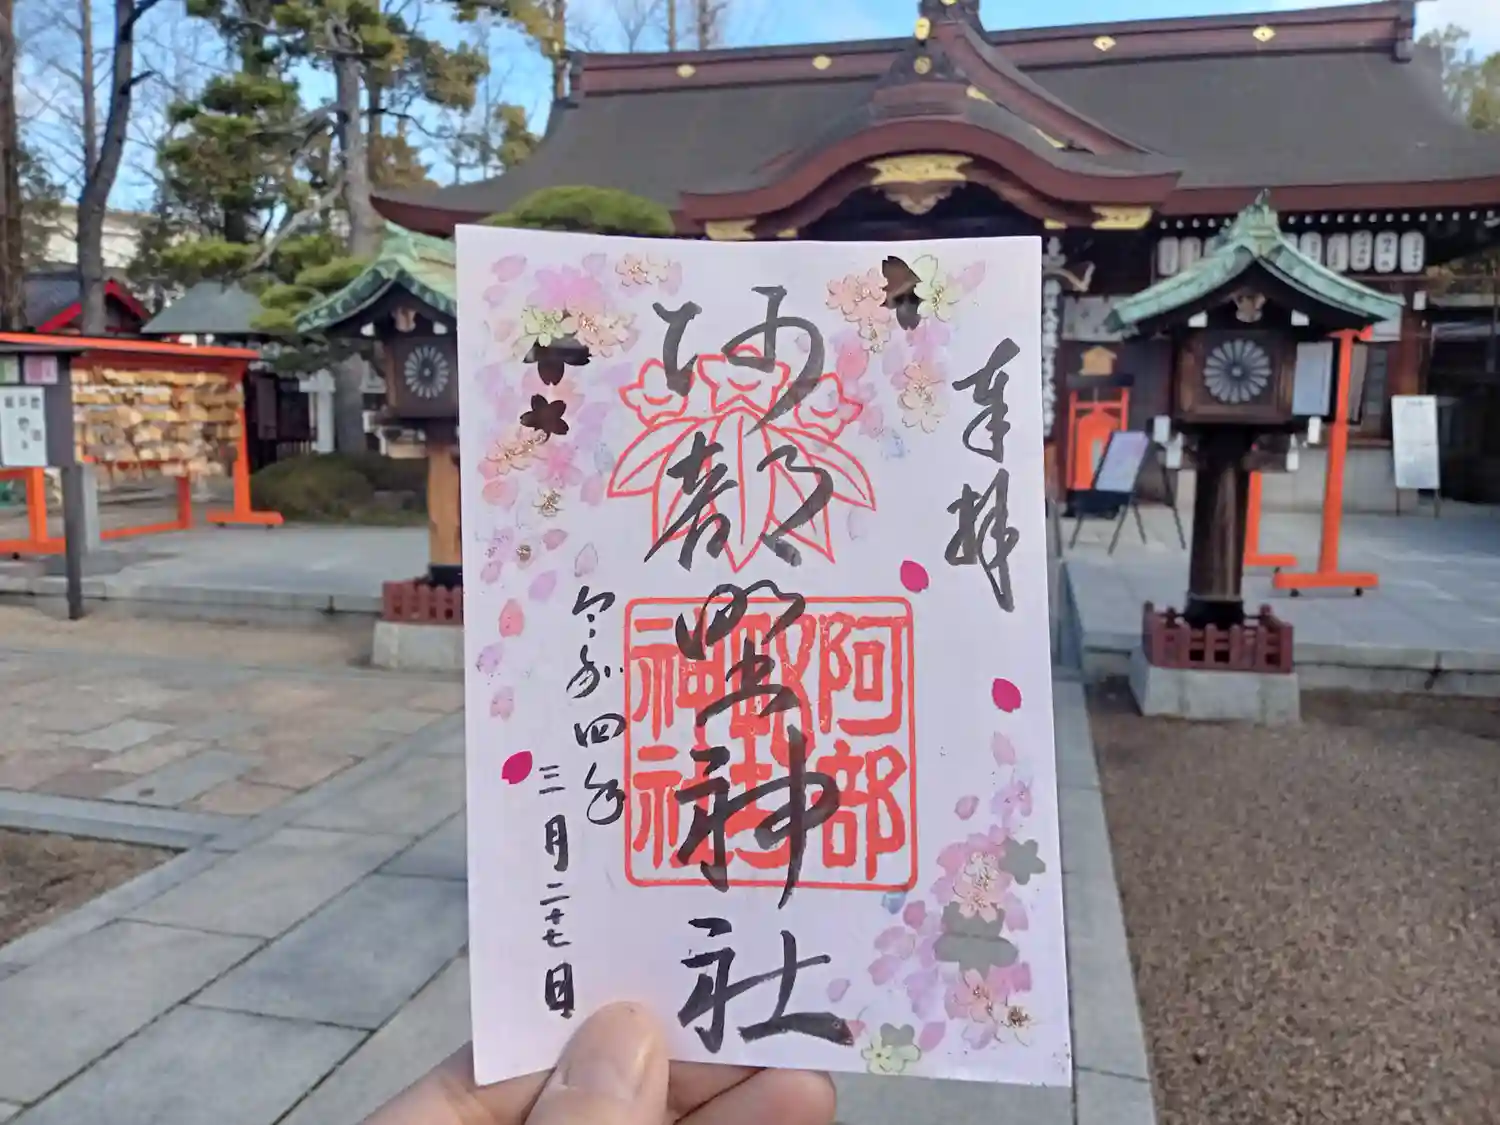 奉拝
阿部野神社
阿部
野
神社
令和四年
三月二十七日